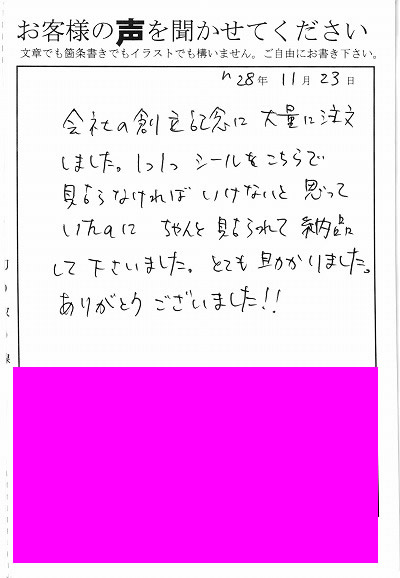 お客様の声を聞かせてください
文章でも箇条書きでもイラストでも構いません。ご自由にお書き下さい。
28年 11月 23日
会社の創立記念に 大量に注文
しました。1つ1つ シールをこちらで
貼らなければ いけないと 思って
いたのに ちゃんと 貼られて 納品
して 下さいました。とても 助かりました。
ありがとう ございました!!